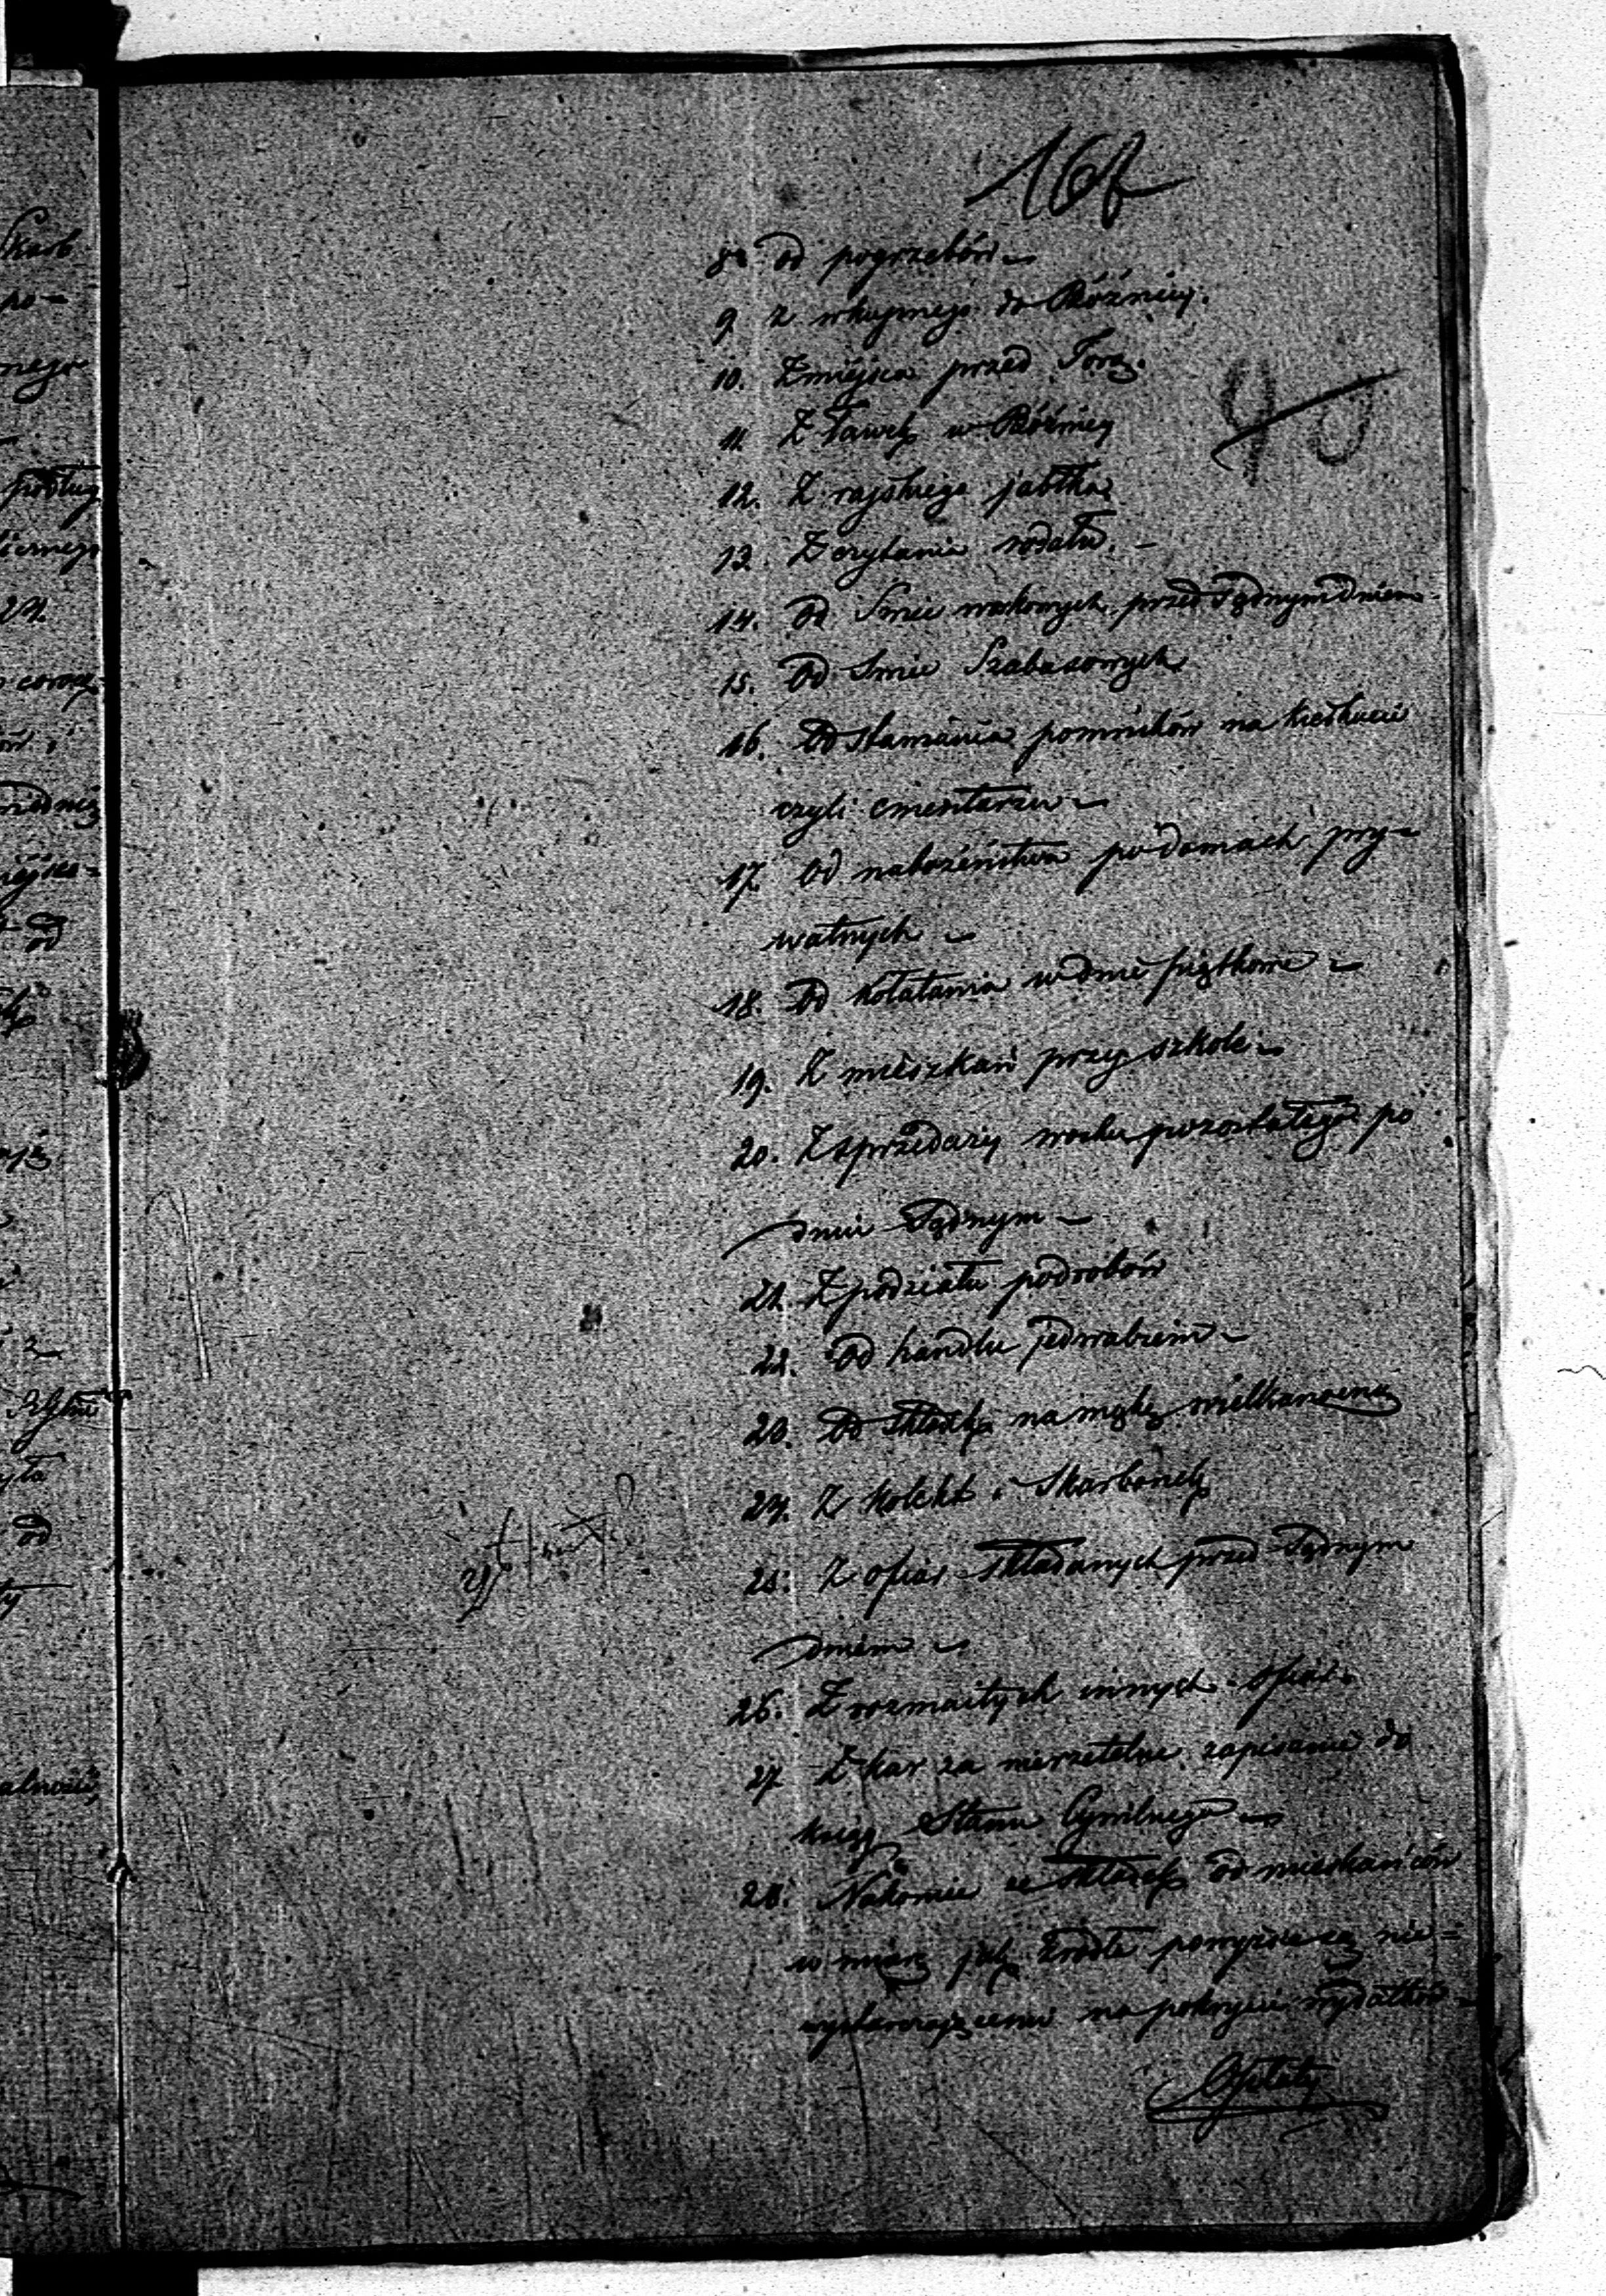 167
8. od pogrzebów
9 z wkupnego do Bóżnicy.
10. Z miejsca przed Torą.
11. Z Ławek w Bóźnicy
12. Z rajskiego jabłka
13. Z czytania rodału. –
14. Od Swiec woskowych przed Sądnym dniem
15. Od Swiec Szabasowych
16. Od stawiania pomników na kierkucie
czyli cmentarzu
17. Od nabożeństwa po domach pry-
watnych
18. Od kołatania w dnie piątkowe
19. Z mieszkań przy szkole
20. Z sprzedaży wosku pozostałego po
dniu Sądnym
21. Z podziału podrobów
22. Od handlu jedwabiem
23. Od składki na mąkę wielkanocną
24. Z kolekt i Skarbonek
25. Z ofiar składanych przed Sądnym
dniem
26. Z rozmaitych innych ofiar
27. Z kar za nierzetelne zapisanie do
ksiąg Stanu Cywilnego
28. Nakoniec ze składek od mieszkańców
w miarę jak źródła powyższe są nie-
wystarczającemi na pokrycie wydatków
Opłaty
Skarb
po-
od
od